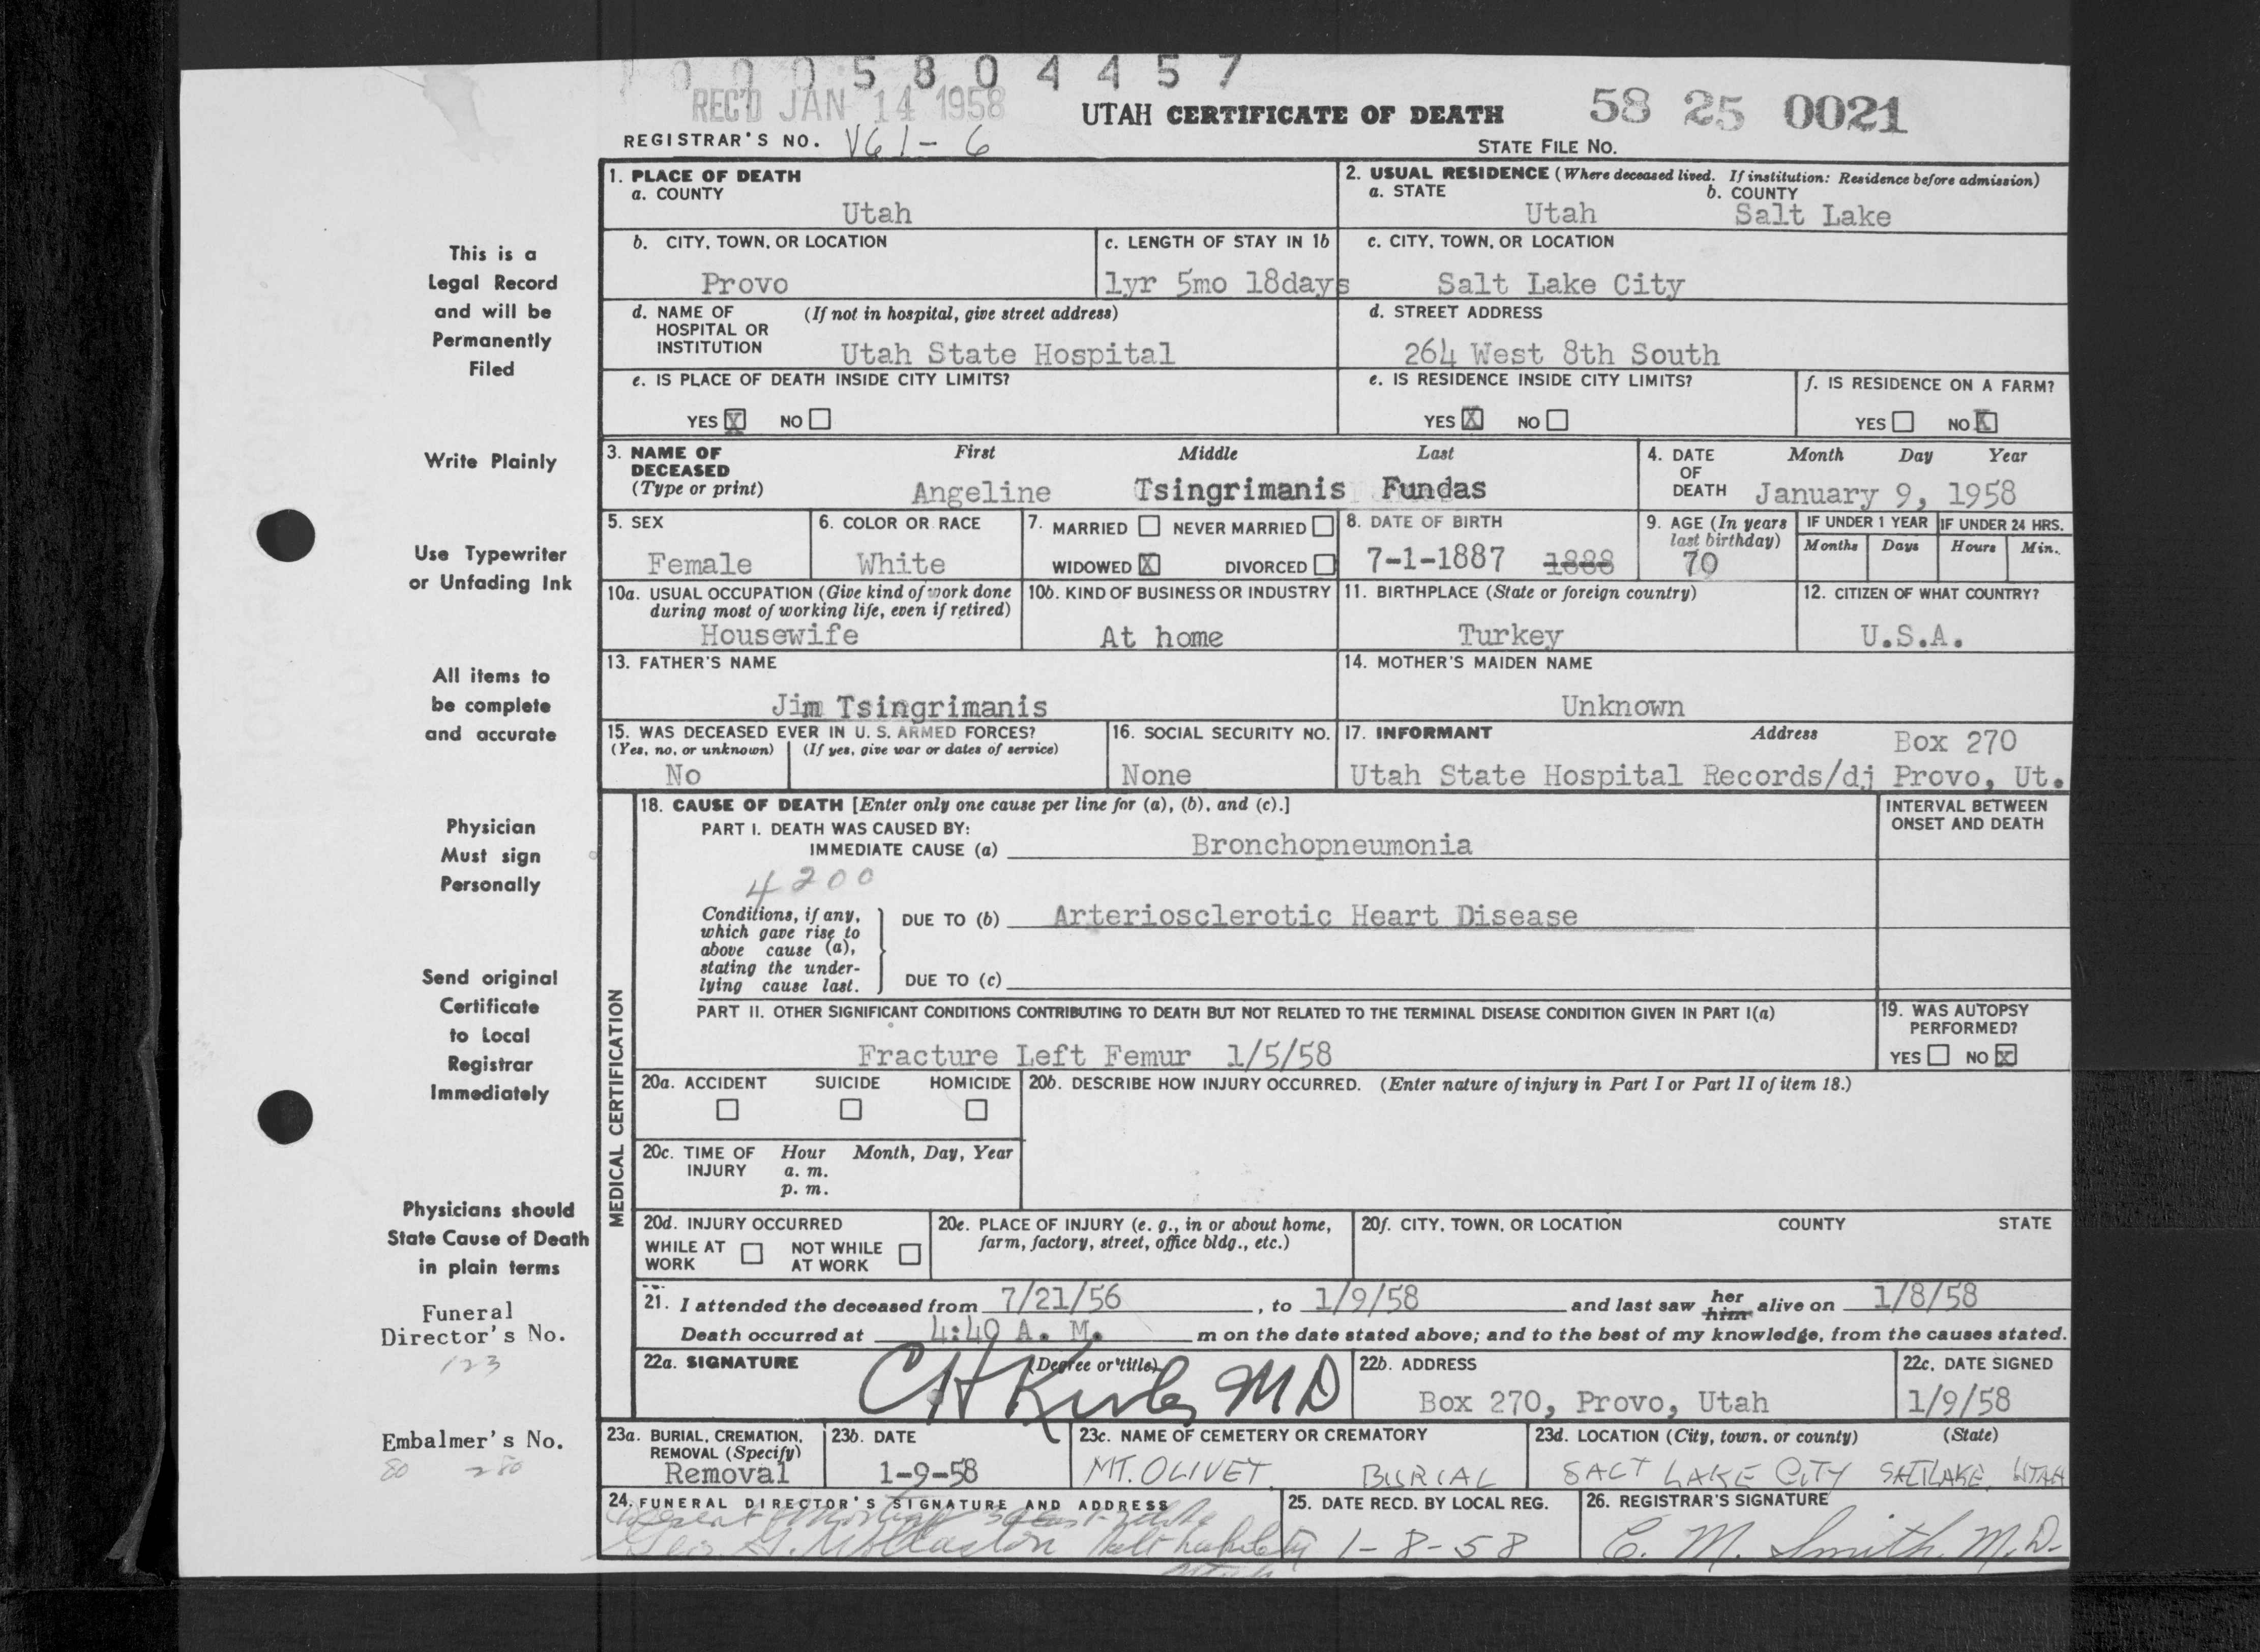 0 0 0 5 8 0 4 4 5 7
REC'D JAN 14 1958
UTAH CERTIFICATE OF DEATH
58 25 0021
REGISTRAR'S NO. V61-6
STATE FILE NO.
This is a
Legal Record
and will be
Permanently
Filed
Write Plainly
Use Typewriter
or Unfading Ink
All items to
be complete
and accurate
Physician
Must sign
Personally
Send original
Certificate
to Local
Registrar
Immediately
Physicians should
State Cause of Death
in plain terms
Funeral
Director's No.
123
Embalmer's No.
80 280
1. PLACE OF DEATH
a. COUNTY
Utah
2. USUAL RESIDENCE (Where deceased lived. If institution: Residence before admission)
a. STATE b. COUNTY
Utah Salt Lake
b. CITY, TOWN, OR LOCATION
Provo
c. LENGTH OF STAY IN 1b
1yr 5mo 18days
c. CITY, TOWN, OR LOCATION
Salt Lake City
d. NAME OF (If not in hospital, give street address)
HOSPITAL OR
INSTITUTION
Utah State Hospital
d. STREET ADDRESS
264 West 8th South
e. IS PLACE OF DEATH INSIDE CITY LIMITS?
YES X NO
e. IS RESIDENCE INSIDE CITY LIMITS?
YES X NO
f. IS RESIDENCE ON A FARM?
YES NO X
3. NAME OF
DECEASED
(Type or print)
First Middle Last
Angeline Tsingrimanis Fundas
4. DATE
OF
DEATH
Month Day Year
January 9, 1958
5. SEX
Female
6. COLOR OR RACE
White
7. MARRIED NEVER MARRIED
WIDOWED X DIVORCED
8. DATE OF BIRTH
7-1-1887 1888
9. AGE (In years
last birthday)
70
IF UNDER 1 YEAR
Months Days
IF UNDER 24 HRS.
Hours Min.
10a. USUAL OCCUPATION (Give kind of work done
during most of working life, even if retired)
Housewife
10b. KIND OF BUSINESS OR INDUSTRY
At home
11. BIRTHPLACE (State or foreign country)
Turkey
12. CITIZEN OF WHAT COUNTRY?
U.S.A.
13. FATHER'S NAME
Jim Tsingrimanis
14. MOTHER'S MAIDEN NAME
Unknown
15. WAS DECEASED EVER IN U. S. ARMED FORCES?
(Yes, no, or unknown) (If yes, give war or dates of service)
No
16. SOCIAL SECURITY NO.
None
17. INFORMANT Address
Box 270
Utah State Hospital Records/dj Provo, Ut.
MEDICAL CERTIFICATION
18. CAUSE OF DEATH [Enter only one cause per line for (a), (b), and (c).]
PART I. DEATH WAS CAUSED BY:
IMMEDIATE CAUSE (a) Bronchopneumonia
INTERVAL BETWEEN
ONSET AND DEATH
4200
Conditions, if any,
which gave rise to
above cause (a),
stating the under-
lying cause last.
DUE TO (b) Arteriosclerotic Heart Disease
DUE TO (c)
PART II. OTHER SIGNIFICANT CONDITIONS CONTRIBUTING TO DEATH BUT NOT RELATED TO THE TERMINAL DISEASE CONDITION GIVEN IN PART I(a)
Fracture Left Femur 1/5/58
19. WAS AUTOPSY
PERFORMED?
YES NO X
20a. ACCIDENT SUICIDE HOMICIDE
20b. DESCRIBE HOW INJURY OCCURRED. (Enter nature of injury in Part I or Part II of item 18.)
20c. TIME OF INJURY
Hour Month, Day, Year
a. m.
p. m.
20d. INJURY OCCURRED
WHILE AT WORK NOT WHILE AT WORK
20e. PLACE OF INJURY (e. g., in or about home,
farm, factory, street, office bldg., etc.)
20f. CITY, TOWN, OR LOCATION COUNTY STATE
21. I attended the deceased from 7/21/56, to 1/9/58 and last saw her him alive on 1/8/58
Death occurred at 4:40 A. M. m on the date stated above; and to the best of my knowledge, from the causes stated.
22a. SIGNATURE (Degree or title)
MD
22b. ADDRESS
Box 270, Provo, Utah
22c. DATE SIGNED
1/9/58
23a. BURIAL, CREMATION,
REMOVAL (Specify)
Removal
23b. DATE
1-9-58
23c. NAME OF CEMETERY OR CREMATORY
MT. OLIVET BURIAL
23d. LOCATION (City, town, or county) (State)
SALT LAKE CITY SALT LAKE, UTAH
24. FUNERAL DIRECTOR'S SIGNATURE AND ADDRESS
25. DATE RECD. BY LOCAL REG.
1-8-58
26. REGISTRAR'S SIGNATURE
C. M. Smith, M.D.